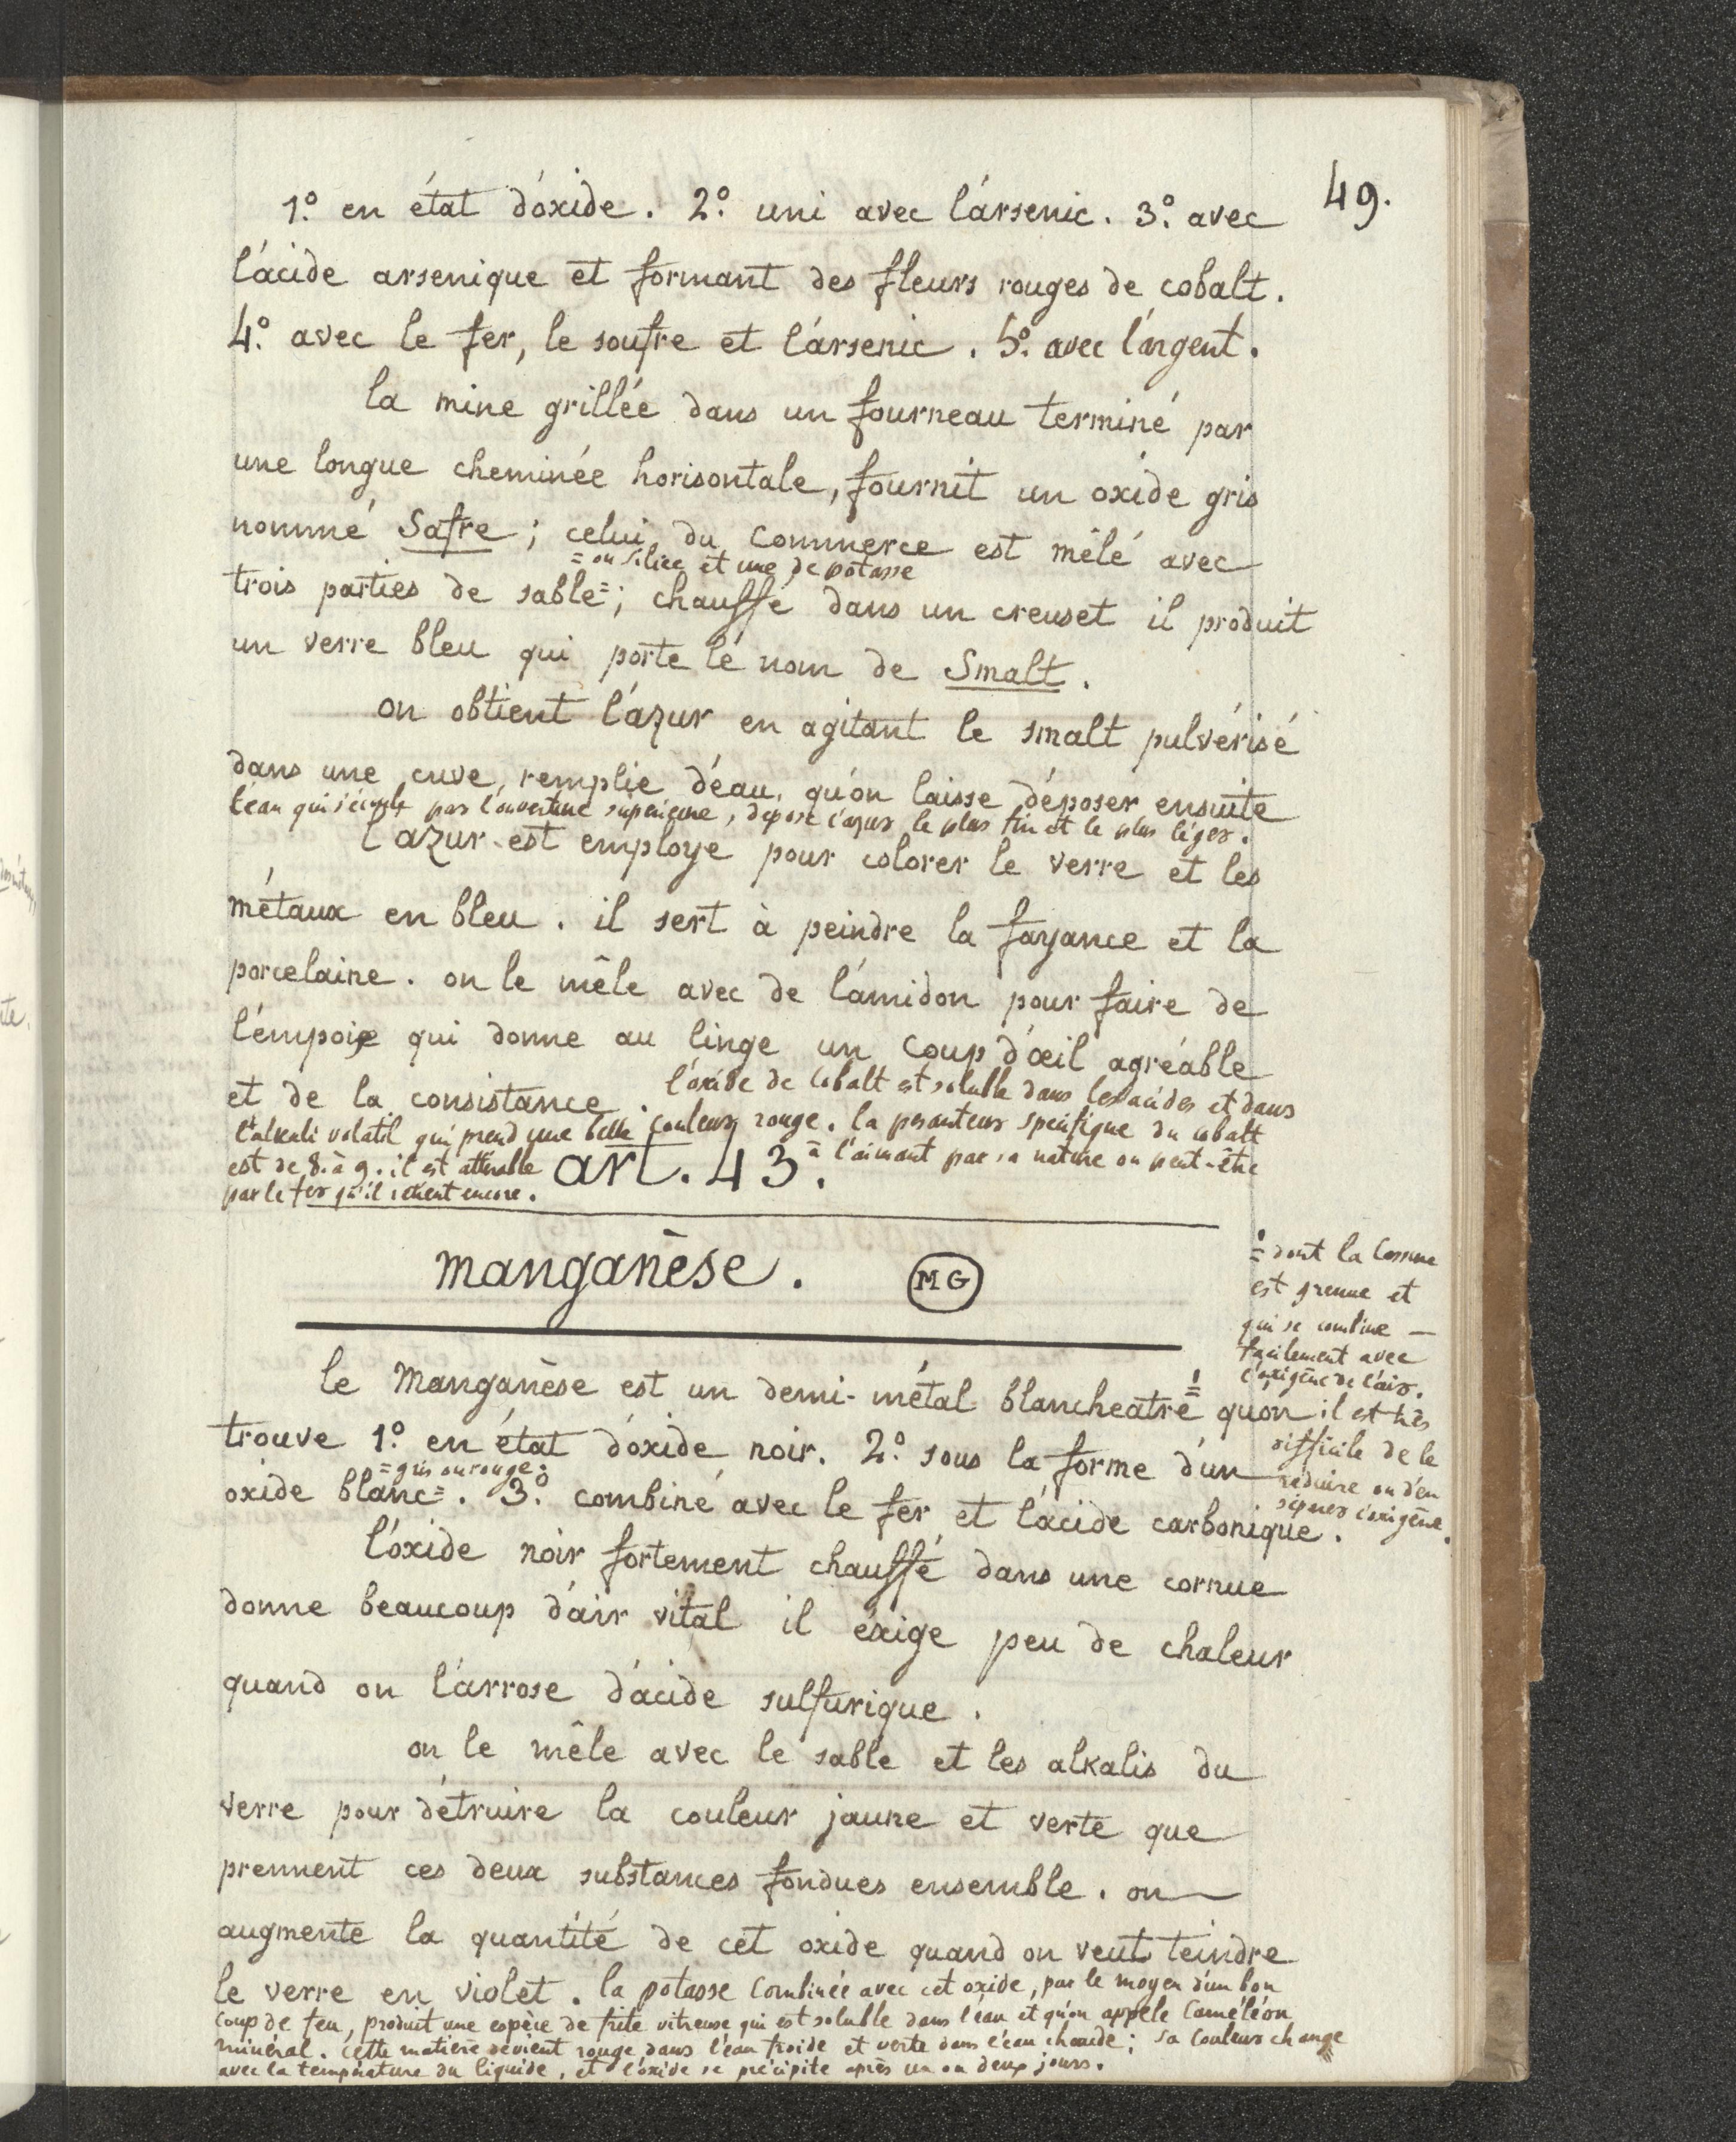 49.
1.º en état d'óxide. 2.º uni avec l'ársenic. 3.º avec
l'ácide arsenique et formant des fleurs rouges de cobalt.
4.º avec le fer, le soufre et l'ársenic. 5.º avec l'árgent.
la mine grillée dans un fourneau terminé par
une longue cheminée horisontale, fournit un oxide gris
nommé Safre ; celui du Commerce est mêlé avec
= ou silice et une de potasse
trois parties de sable= ; chauffé dans un creuset il produit
un verre bleu qui porte le nom de Smalt.
on obtient l'ázur en agitant le smalt pulvérisé
dans une cuve remplie d'éau, qu'on laisse déposer ensuite
l'eau qui s'écoule par l'ouverture supérieure, depose l'azur le plus fin et le plus léger.
l'azur est employé pour colorer le verre et les
métaux en bleu. il sert à peindre la fayance et la
porcelaine. on le mêle avec de l'ámidon pour faire de
l'émpois qui donne au linge un coup d'óeil agréable
et de la consistance. l'oxide de Cobalt est soluble dans les acides et dans
l'alkali volatil qui prend une belle couleur rouge. la pesanteur specifique du cobalt
est de 8. à 9. il est attirable à l'aimant par sa nature ou peut-être
par le fer qu'il retient encore.
art. 43.
manganèse. MG
= dont la Cassure
est grenue et
qui se combine —
facilement avec
l'oxigène de l'air.
il est très
difficile de le
réduire ou d'en
séparer l'oxigène.
le Manganèse est un demi-métal blancheatre= qu'on
trouve 1.º en état d'óxide noir. 2.º sous la forme d'un
= gris ou rouge.
oxide blanc=. 3.º combiné avec le fer et l'ácide carbonique.
l'óxide noir fortement chauffé dans une cornue
donne beaucoup d'áir vital il éxige peu de chaleur
quand on l'árrose d'ácide sulfurique.
on le mêle avec le sable et les alkalis du
verre pour détruire la couleur jaune et verte que
prennent ces deux substances fondues ensemble. on
augmente la quantité de cet oxide quand on veut teindre
le verre en violet. la potasse combinée avec cet oxide, par le moyen d'un bon
coup de feu, produit une espèce de frite vitreuse qui est soluble dans l'eau et qu'on appèle Caméléon
minéral. cette matière devient rouge dans l'éau froide et verte dans l'éau chaude ; sa couleur change
avec la température du liquide, et l'óxide se précipite après un ou deux jours.